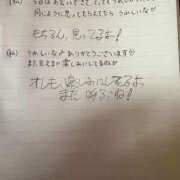 (私) 今日はあといさで
同じように思ってもらえてたら うれしいなぁ
もちろん、思ってるよ!
(私) うれしいなぁ ありがとうございます
また会えるの楽しみにしてるねっ
オレも、楽しみにしてるよ
また 呼ぶね!